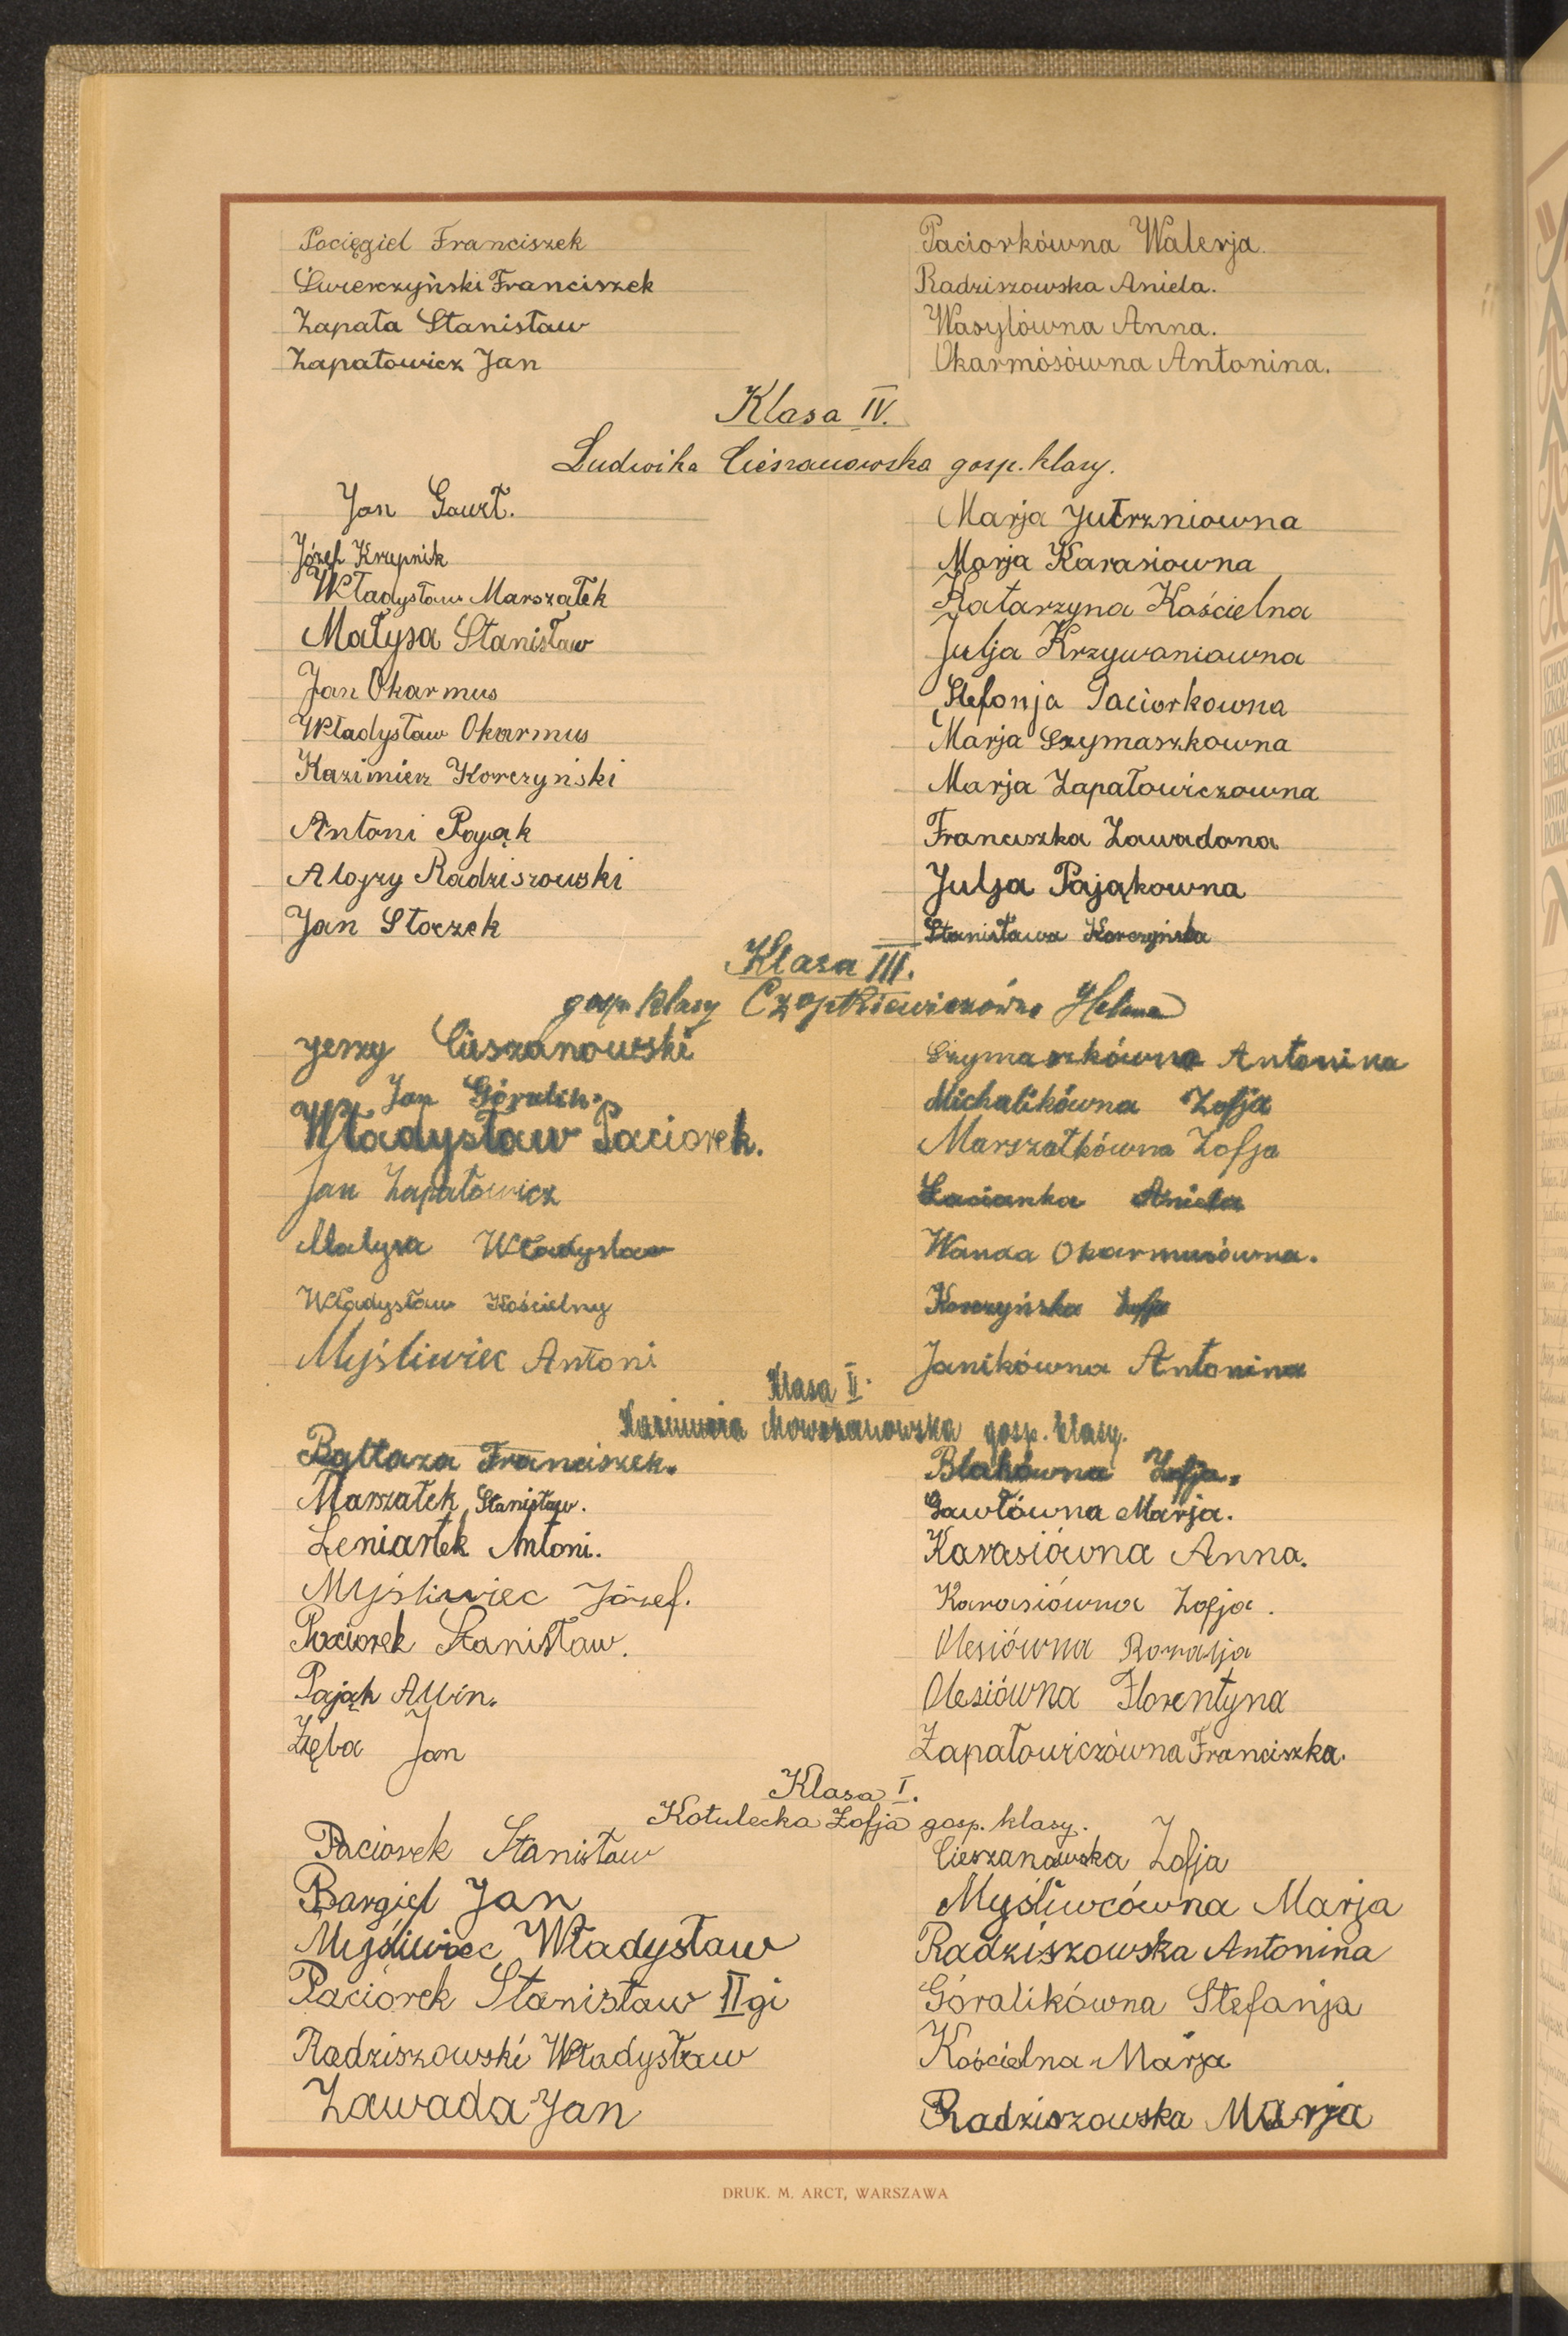 Pocięgiel Franciszek
Świerczyński Franciszek
Zapała Stanisław
Zapałowicz Jan
Paciorkówna Walerja.
Radziszowska Aniela.
Wasylówna Anna.
Okarmósówna Antonina.
Klasa IV.
Ludwika Cieszanowska gosp. klasy.
Jan Gawł.
Józef Krupnik
Władysław Marszałek
Małysa Stanisław
Jan Okarmus
Władysław Okarmus
Kazimierz Korczyński
Antoni Pająk
Alojzy Radziszowski
Jan Stoczek
Marja Jutrzniowna
Marja Karasiowna
Katarzyna Kościelna
Julja Krzywaniowna
Stefanja Paciorkowna
Marja Szymaszkowna
Marja Zapałowiczowna
Franciszka Zawadona
Julja Pająkowna
Stanisława Korczyńska
Klasa III.
gosp. klasy Czaptkiewiczówna Helena
Jerzy Cieszanowski
Jan Góralik.
Władysław Paciorek.
Jan Zapałowicz
Małysa Władysław
Władysław Kościelny
Myśliwiec Antoni
Szymaszkówna Antonina
Michalikówna Zofja
Marszałkówna Zofja
Łacianka Aniela
Wanda Okarmusówna.
Korczyńska Zofja
Janikówna Antonina
Klasa II.
Kazimiera Mowszanowska gosp. klasy.
Baltaza Franciszek.
Marszałek Stanisław.
Leniartek Antoni.
Myśliwiec Józef.
Paciorek Stanisław.
Pająk Alwin.
Zięba Jan
Blakówna Zofja.
Gawłówna Marja.
Karasiówna Anna.
Karasiówna Zofja.
Olesiówna Rozalja
Olesiówna Florentyna
Zapałowiczówna Franciszka.
Klasa I.
Kotulecka Zofja gosp. klasy.
Paciorek Stanisław
Bargieł Jan
Myśliwiec Władysław
Paciórek Stanisław IIgi
Radziszowski Władysław
Zawada Jan
Cieszanowska Zofja
Myśliwcówna Marja
Radziszowska Antonina
Góralikówna Stefanja
Kościelna Marja
Radziszowska Marja
DRUK. M. ARCT, WARSZAWA